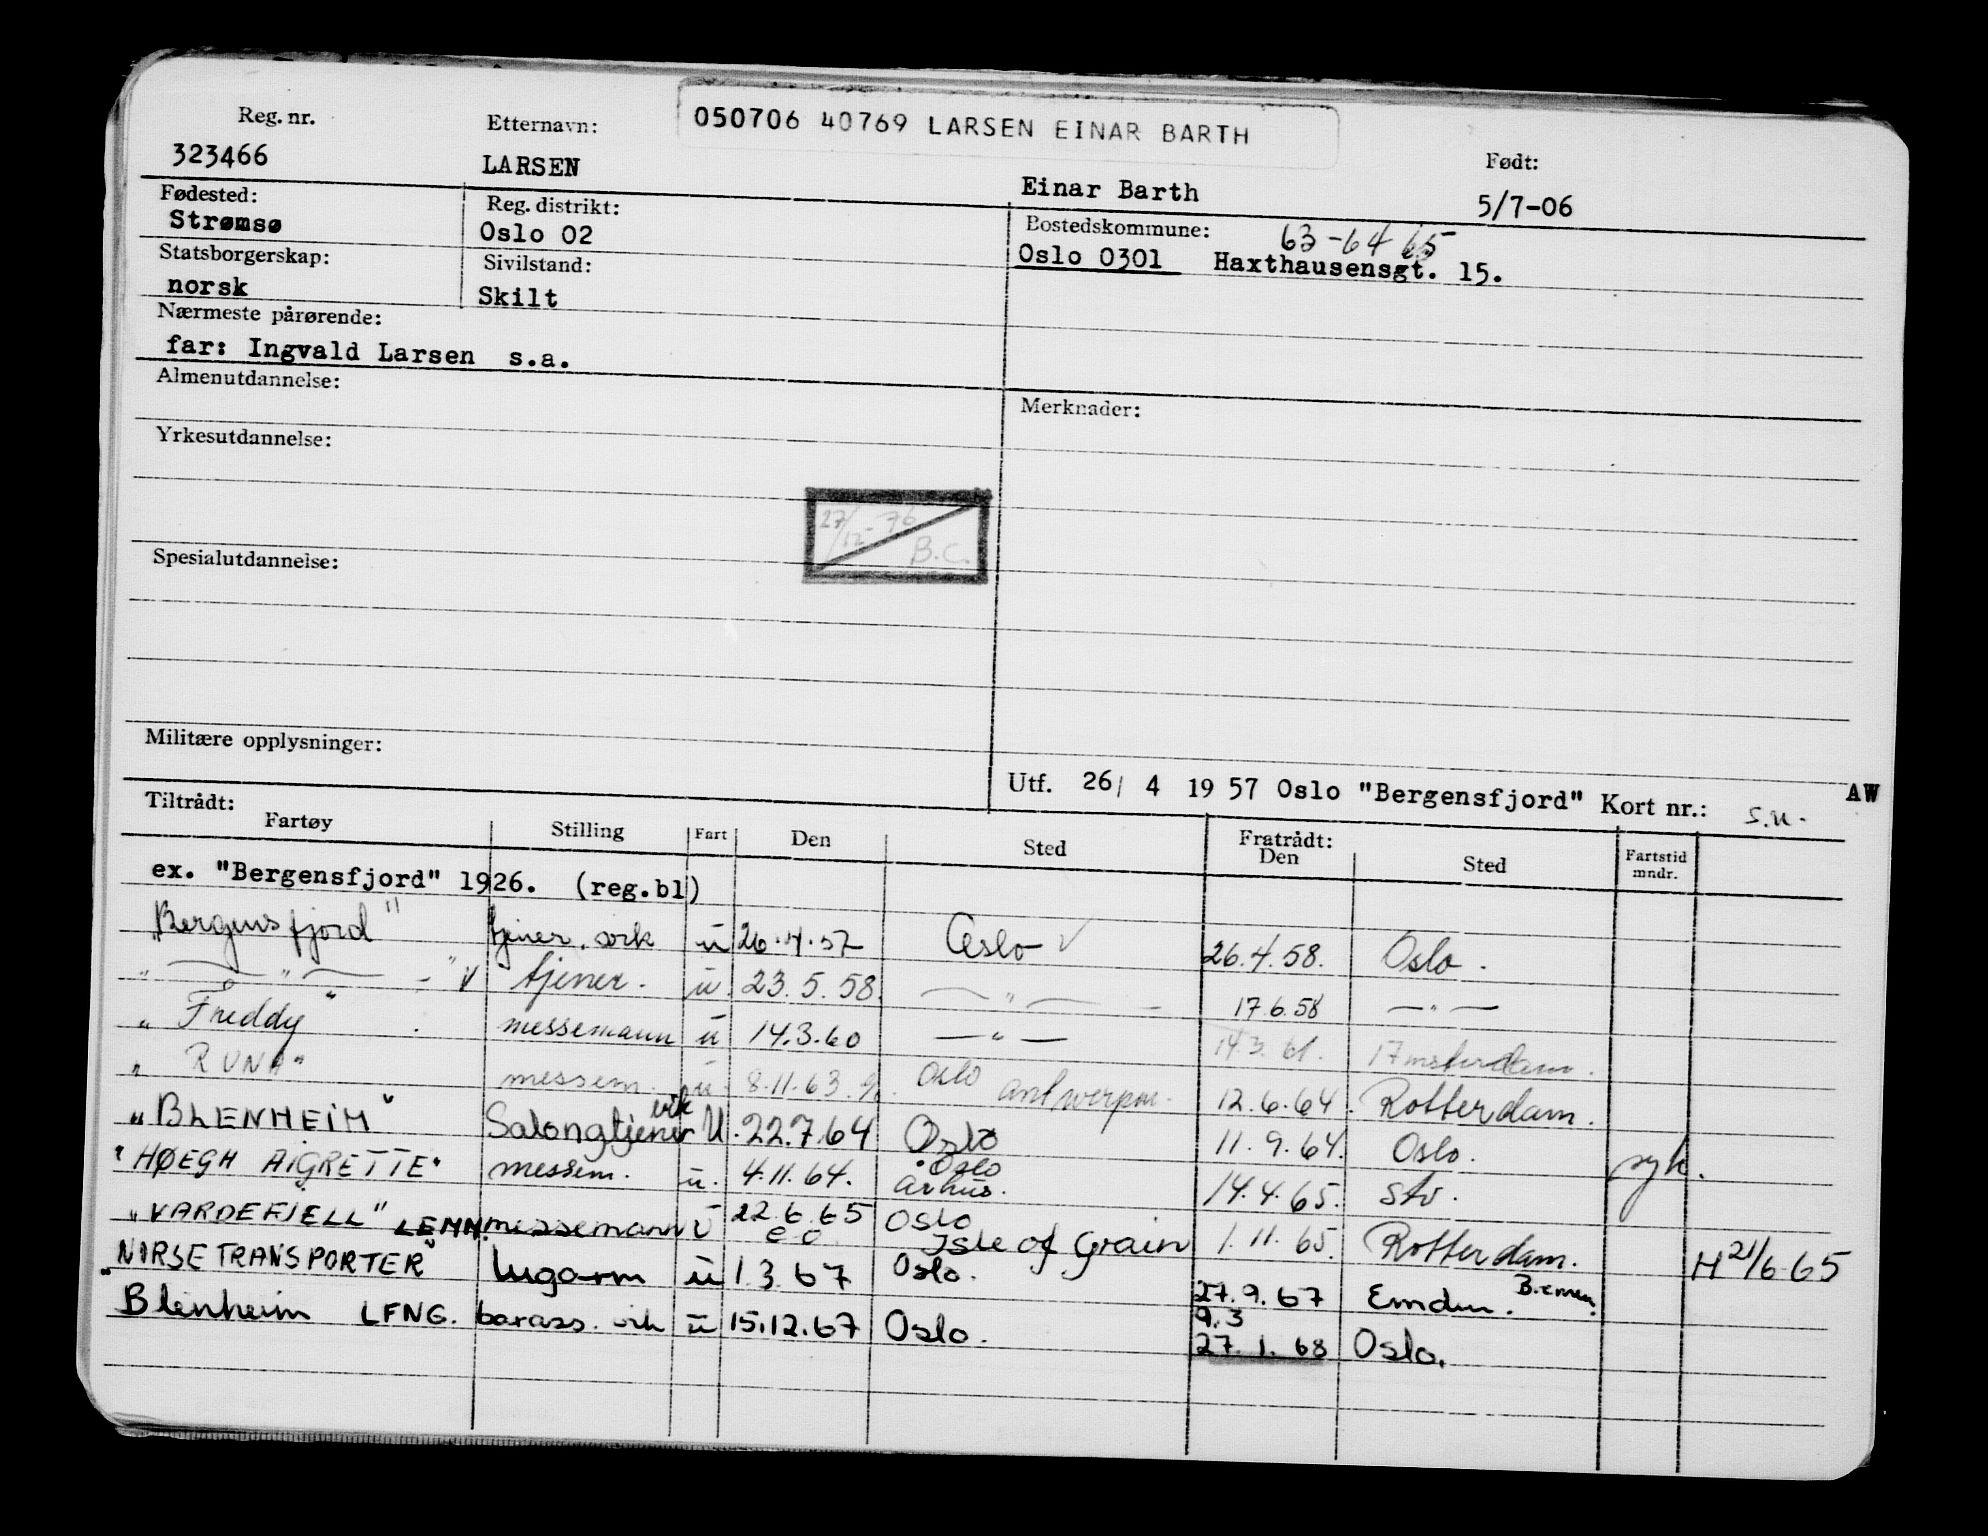 050706 40769 LARSEN EINAR BARTH
Reg. nr. Etternavn: Født:
323466 LARSEN Einar Barth 5/7-06
Fødested: Reg. distrikt: Bostedskommune: 63-64 65
Strømsø Oslo 02 Oslo 0301 Haxthausensgt. 15.
Statsborgerskap: Sivilstand:
norsk Skilt
Nærmeste pårørende:
far: Ingvald Larsen s.a.
Almenutdannelse: Merknader:
Yrkesutdannelse:
27/12-76
B.C.
Spesialutdannelse:
Militære opplysninger:
Utf. 26/ 4 19 57 Oslo "Bergensfjord" Kort nr.: s.u. AW
Tiltrådt: Fratrådt:
Fartøy Stilling Fart Den Sted Den Sted Fartstid mndr.
ex. "Bergensfjord" 1926. (reg.bl)
"Bergensfjord" tjener. vik u 26.4.57 Oslo ✓ 26.4.58. Oslo.
" — " — - " v tjener. u. 23.5.58. — " — - 17.6.58 — " —
"Freddy" . messemann u 14.3.60 — " — 14.3.61. Amsterdam.
"RUNA" messem. u. 8.11.63 Oslo antwerpen. 12.6.64. Rotterdam.
"BLENHEIM" Salongtjener vik U. 22.7.64 Oslo 11.9.64. Oslo. syk.
"HØEGH AIGRETTE" messem. u. 4.11.64. Oslo århus. 14.4.65. stv.
"VARDEFJELL" LEMN. messemann U 22.6.65 e.o. Oslo Isle of Grain 1.11.65. Rotterdam. H 21/6-65
"NORSE TRANSPORTER" lugarm u 1.3.67 Oslo. 27.9.67 Emden. Bremen.
9.3
Blenheim LFNG. vik u 15.12.67 Oslo. 27.1.68 Oslo.